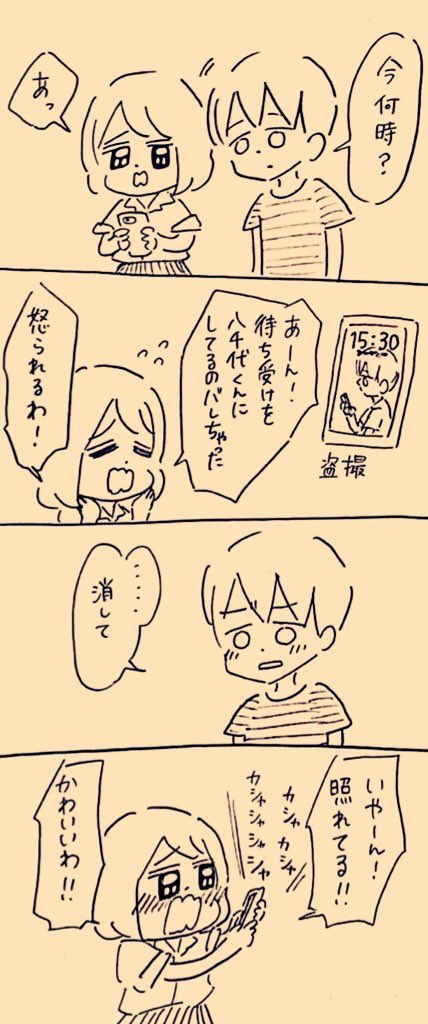 今何時？
あっ
15:30
盗撮
あーん！
待ち受けを
八千代くんに
してるのバレちゃった
怒られるわ！
……
消して
いやーん！
照れてる！！
カシャカシャ
カシャシャシャシャ
かわいいわ！！